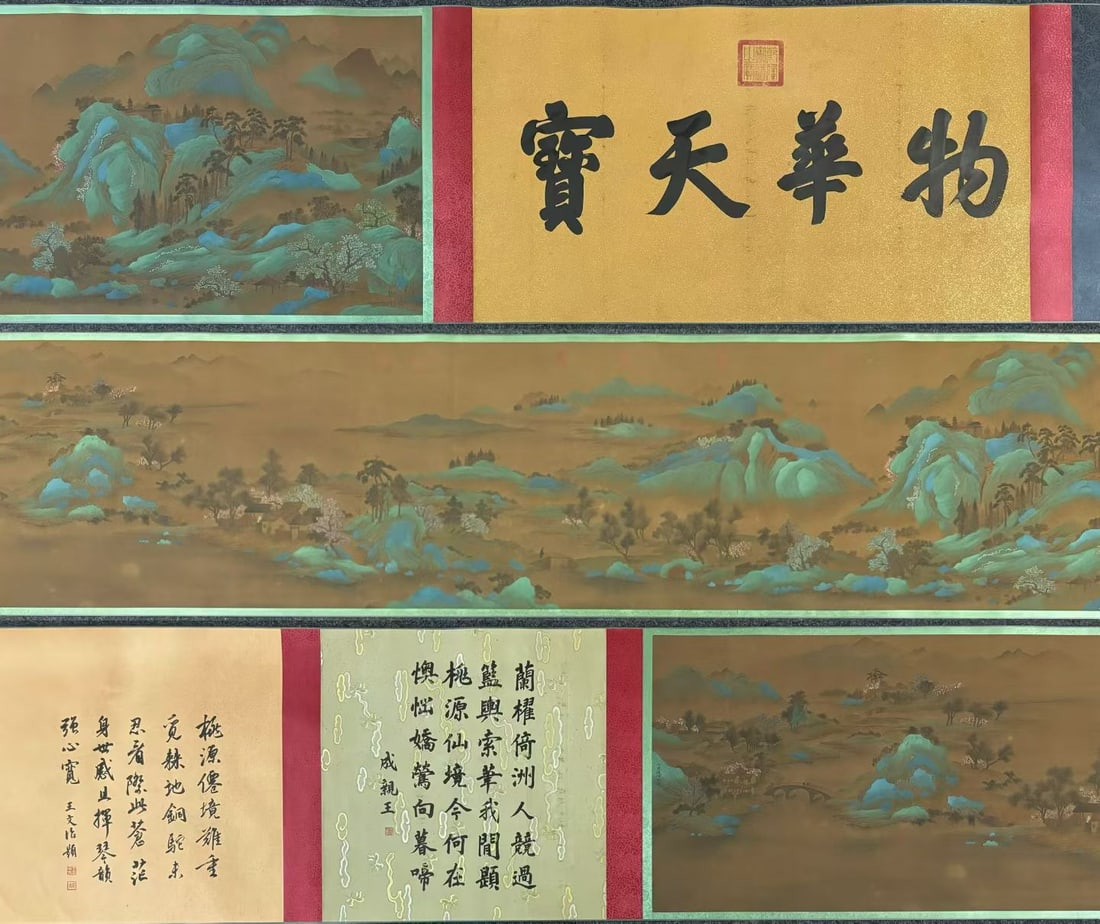 物華天寶
蘭櫂倚洲人競過
籃輿索筆我閒題
桃源仙境今何在
懊惱嬌鶯向暮啼
成親王
桃源僊境難重
覓棘地銅駝未
忍看際此蒼茫
身世感且揮琴韻
强心寬 王文治題